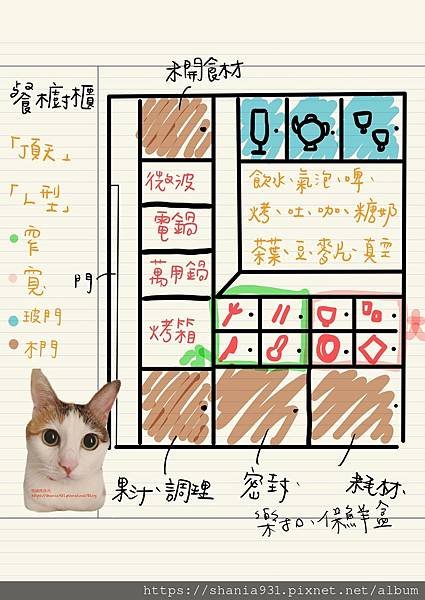 未開食材
餐櫥櫃
「頂天」
「L型」
窄
寬
玻門
木門
門
微波
電鍋
萬用鍋
烤箱
飲水、氣泡、啤、
烤、吐、咖、糖奶
茶葉、豆、麥片、真空
果汁、調理
密封、
樂扣、保鮮盒
耗材、
https://shania931.pixnet.net/album